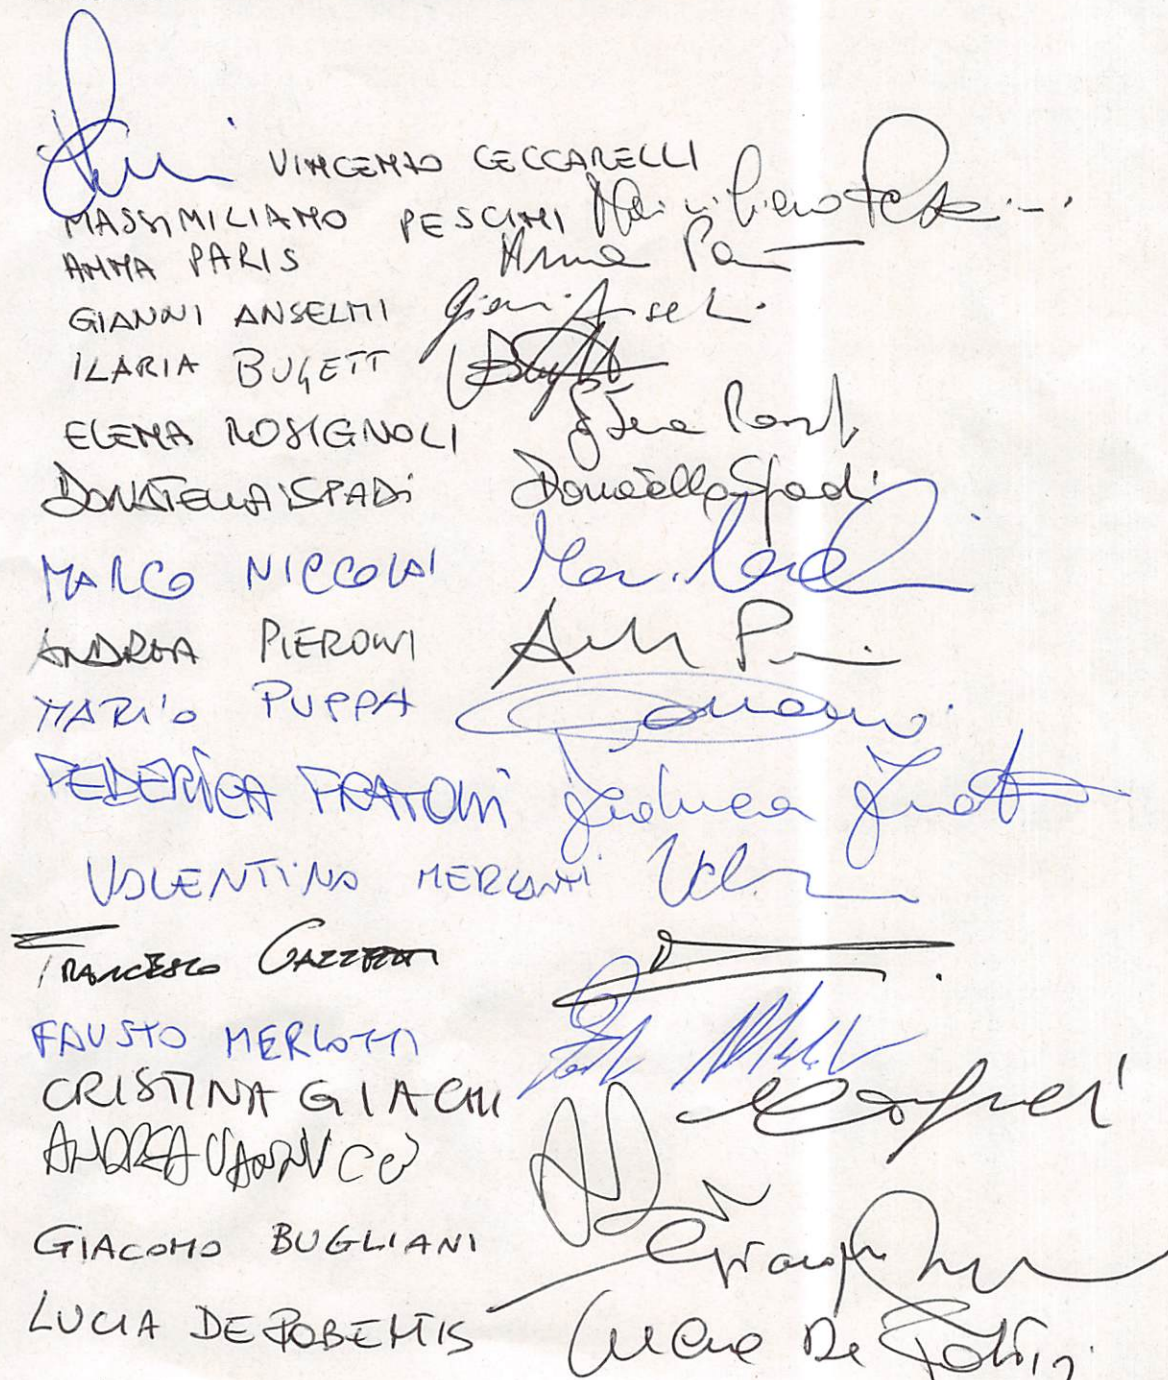 VINCENZO CECCARELLI
MASSIMILIANO PESCINI Massimiliano Pescini
ANNA PARIS Anna Paris
GIANNI ANSELMI Gianni Anselmi
ILARIA BUGETT
ELENA ROSIGNOLI Elena
DONATELLA SPADI Donatella Spadi
MARCO NICCOLAI
ANDREA PIERONI
MARIO PUPPA
FEDERICA FRATONI Federica
VALENTINO MERCANTI
FRANCESCO GAZZETTI
FAUSTO MERLOTTI
CRISTINA GIACHI
ANDREA VANNUCCI
GIACOMO BUGLIANI
LUCIA DE ROBERTIS Lucia De Robertis